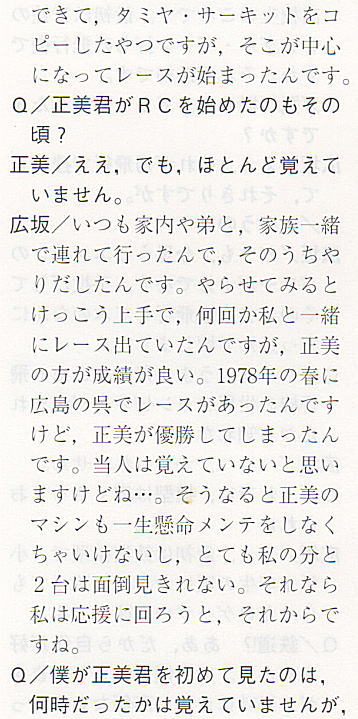 でき，，タミヤ・サーキットをコ
ピーしたやつですが，そこが中心
になってレースが始まったんです。
Ｑ／正美君がＲＣを始めたのもその
頃？
正美／ええ，でも，ほとんど覚えて
いません。
広坂／いつも家内や弟と，家族一緒
で連れて行ったんで，そのうちや
りだしたんです。やらせてみると
けっこう上手で，何回か私と一緒
にレース出ていたんですが，正美
の方が成績が良い。1978年の春に
広島の呉でレースがあったんです
けど，正美が優勝してしまったん
です。当人は覚えていないと思い
ますけどね…。そうなると正美の
マシンも一生懸命メンテをしなく
ちゃいけないし，とても私の分と
２台は面倒見きれない。それなら
私は応援に回ろうと，それからで
すね。
Ｑ／僕が正美君を初めて見たのは，
何時だったかは覚えていませんが，